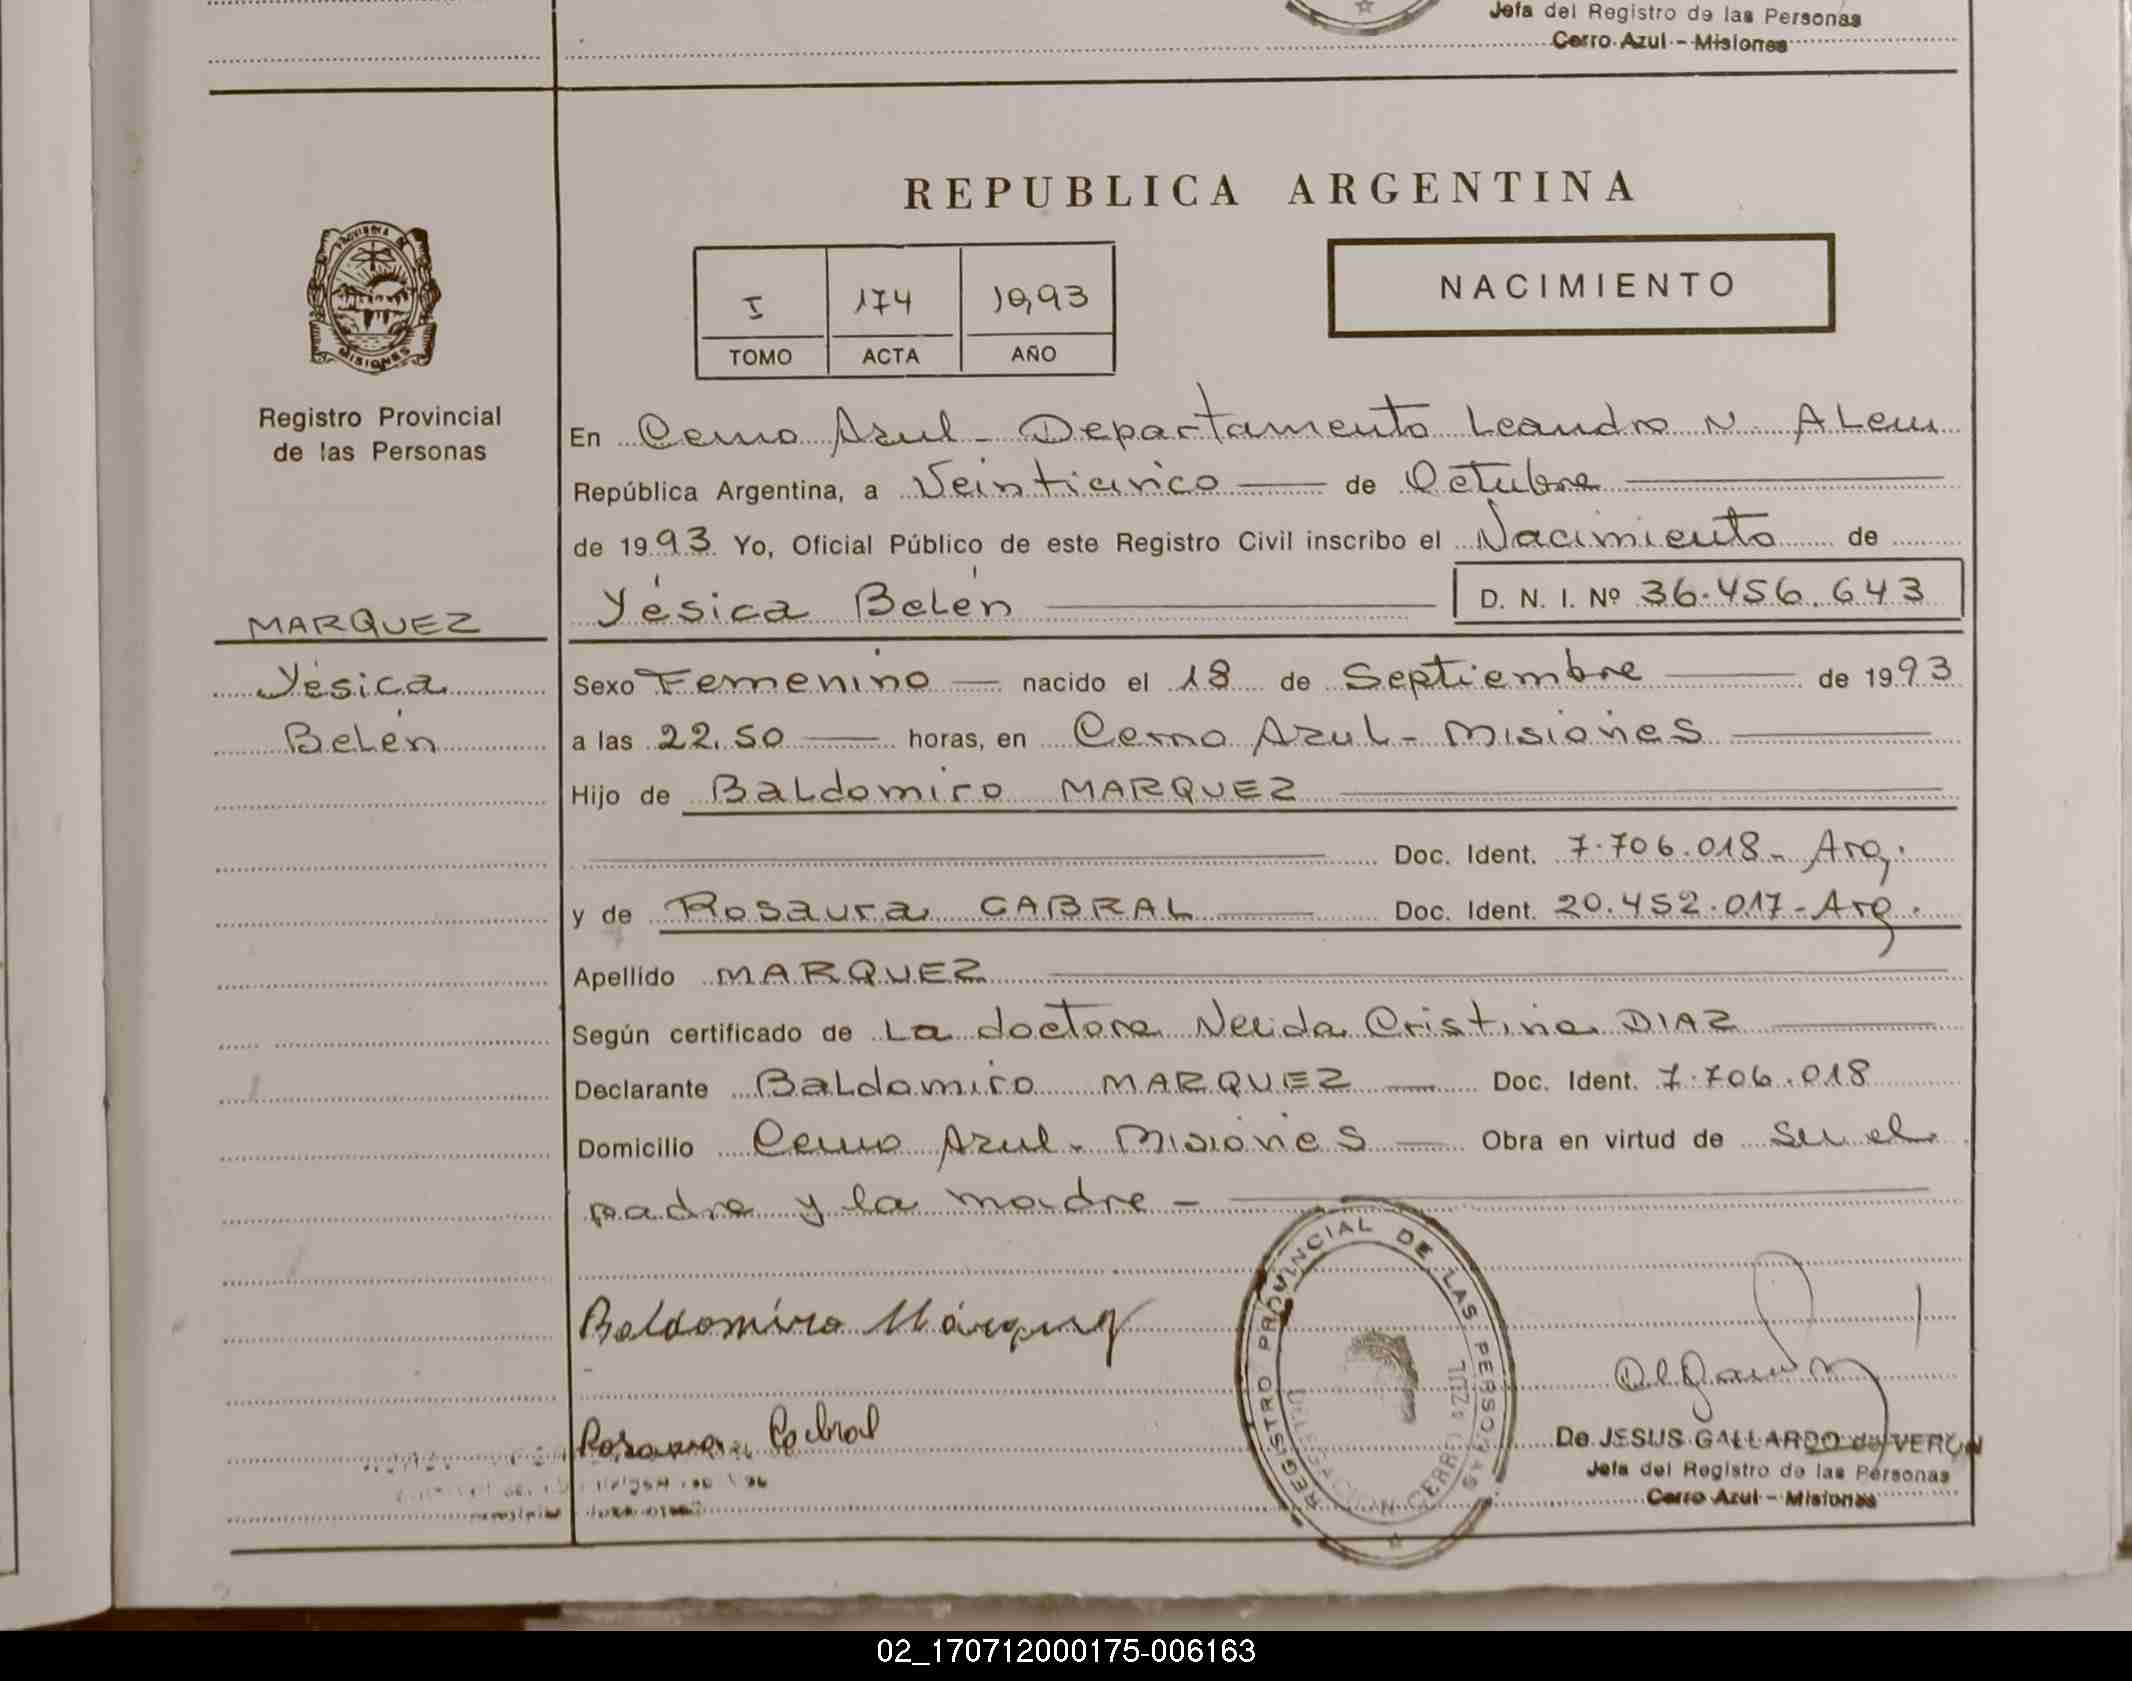 Jefa del Registro de las Personas
Cerro Azul - Misiones
REPUBLICA ARGENTINA
PROVINCIA DE
MISIONES
Registro Provincial
de las Personas
I 174 1993
TOMO ACTA AÑO
NACIMIENTO
En Cerro Azul - Departamento Leandro N. ALem
República Argentina, a Veinticinco de Octubre
de 1993 Yo, Oficial Público de este Registro Civil inscribo el Nacimiento de
Yésica Belén D. N. I. Nº 36.456.643
MARQUEZ
Yésica
Belén
Sexo Femenino nacido el 18 de Septiembre de 1993
a las 22,50 horas, en Cerro Azul - Misiones
Hijo de Baldomiro MARQUEZ
Doc. Ident. 7.706.018 - Arg.
y de Rosaura CABRAL Doc. Ident. 20.452.017 - Arg.
Apellido MARQUEZ
Según certificado de La doctora Nelida Cristina DIAZ
Declarante Baldomiro MARQUEZ Doc. Ident. 7.706.018
Domicilio Cerro Azul - Misiones Obra en virtud de Ser el
padre y la madre -
Baldomiro Márquez
Cabral
REGISTRO PROVINCIAL DE LAS PERSONAS
De JESUS GALLARDO de VERON
Jefa del Registro de las Personas
Cerro Azul - Misiones
02_170712000175-006163